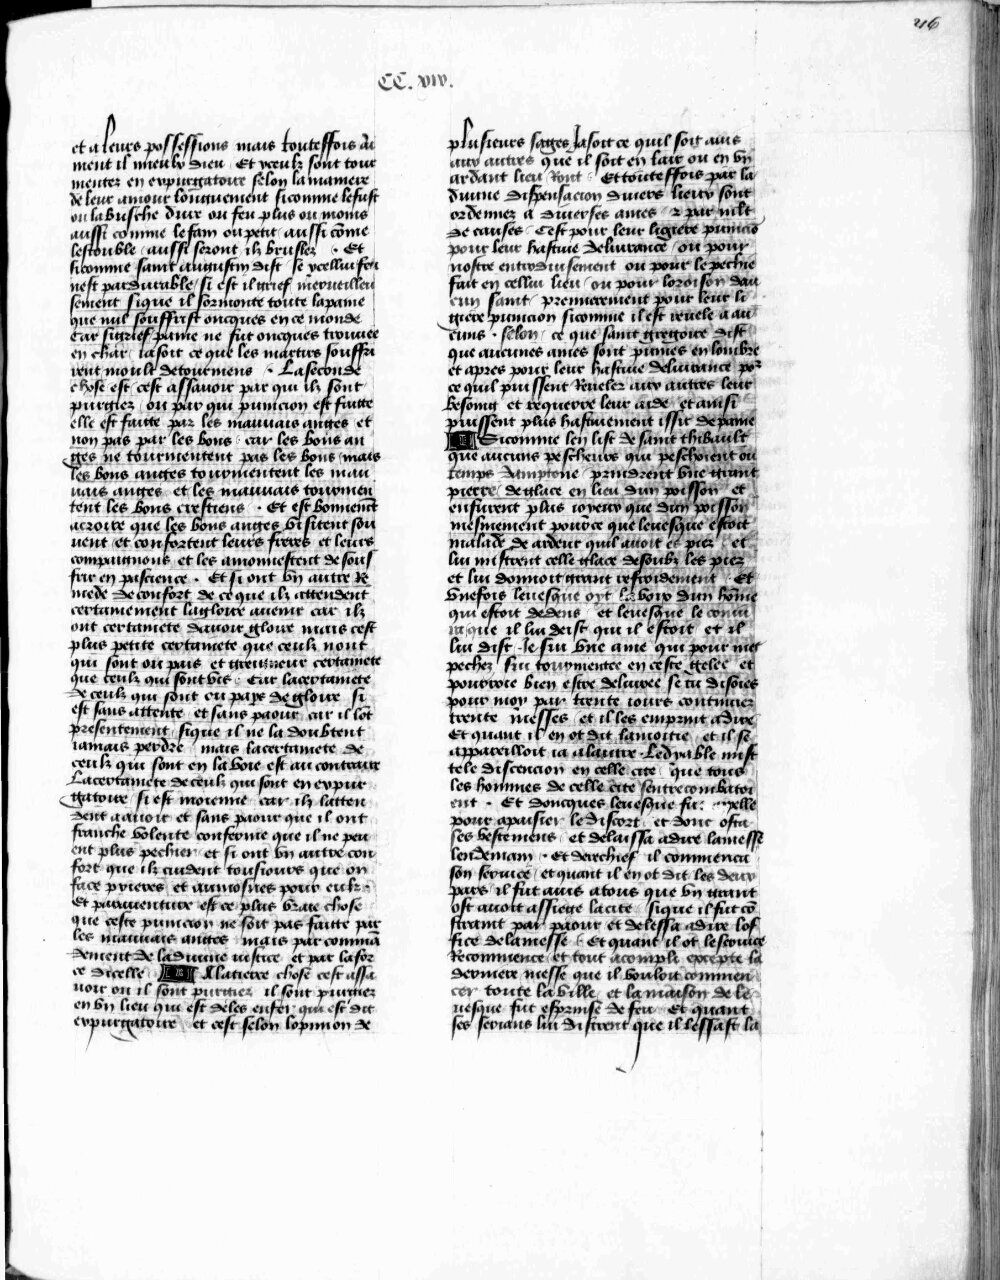 216
CC. xiv.
et a leurs possessions mais touteffois ai
ment il mieulx dieu Et yceulx sont tour
mentez en expurgatoire selon la maniere
de leur amour longuement sicomme le fust
ou la busche dure ou feu plus ou moins
aussi comme le fain ou petit aussi cōme
lestouble aussi seront ilz bruslez . Et
sicomme saint augustin dist se ycellui feu
nest pardurable si est il grief merveilleu
sement si que il sormonte toute la paine
que nul souffrist oncques en ce monde
Car si grief paine ne fut oncques trouvee
en char ia soit ce que les martirs souffri
rent moult de tourmens . La seconde
chose est cest assavoir par qui ilz sont
purgiez ou par qui punicion est faitte
elle est faitte par les mauvais anges et
non pas par les bons car les bons an
ges ne tourmentent pas les bons mais
les bons anges tourmentent les mau
vais anges et les mauvais tourmen
tent les bons crestiens . Et est bonnement
a croire que les bons anges visitent sou
vent et confortent leurs freres et leurs
compaignons et les amonnestent de souf
frir en pascience . Et si ont vn autre re
mede de confort de ce que ilz attendent
certainement la gloire avenir car ilz
ont certainete davoir gloire mais cest
plus petite certainete que ceulx nont
qui sont ou pais et greigneur certainete
que ceulx qui sont vis . Car la certainete
de ceulx qui sont ou pays de gloire si
est sans attente et sans paour car il lōt
presentement si que il ne la doubtent
iamais perdre mais la certainete de
ceulx qui sont en la voie est au contraire
La certainete de ceulx qui sont en expur
gatoire si est moienne car ilz latten
dent a avoir et sans paour que il ont
franche volente confermee que il ne peu
ent plus pechier et si ont vn autre con
fort que ilz cuident tousiours que on
face prieres et aumosnes pour eulx .
Et paraventure est ce plus vraie chose
que ceste punicion ne soit pas faitte par
les mauvais anges mais par commā
dement de la divine iustice et par la for
ce dicelle . A la tierce chose cest assa
voir ou il sont purgiez il sont purgiez
en vn lieu qui est deles enfer qui est dit
expurgatoire et cest selon lopinion de
plusieurs sages Ja soit ce quil soit avis
aux autres que il soit en lair ou en vn
ardant lieu ront . Et touteffois par la
divine dispensacion divers lieux sont
ordennez a diverses ames et par mlt
de causes Cest pour leur ligiere punicio
pour leur hastive delivrance ou pour
nostre entroduisement ou pour le pechie
fait en cellui lieu ou pour loroison dau
cun saint premierement pour leur li
giere punicion sicomme il est revele a au
cuns . selon ce que saint gregoire dist
que aucunes ames sont punies en lombre
et apres pour leur hastive delivrance por
ce quil puissent reveler aux autres leur
besoing et requerre leur aide et ainsi
puissent plus hastivement issir de paine
Sicomme len list de saint thibault
que aucuns pescheurs qui peschoient ou
temps dautompne prindrent vne grant
pierre de glace en lieu dun poisson et
en furent plus ioyeux que dun poisson
mesmement pource que levesque estoit
malade de ardeur quil avoit es piez et
lui mistrent celle glace desoubz les piez
et lui donnoit grant refroidement . Et
vnefois levesque oyt la voix dun hōme
qui estoit dedens et levesque le coniu
ra que il lui deist qui il estoit et il
lui dist Je sui vne ame qui pour mes
pechez sui tourmentee en ceste gelee et
pourroie bien estre delivree se tu disoies
pour moy par trente iours continuez
trente messes et il les emprint a dire
Et quant il en ot dit la moitie et il se
appareilloit ia a lautre . Le dyable mist
tele discencion en celle cite que tous
les hommes de celle cite sentrecombatoi
ent . Et doncques levesque fu appelle
pour apaisier le discort et dont osta
ses vestemens et delaissa a dire la messe
lendemain . Et derechief il commenca
son service et quant il en ot dit les deux
pars il fut avis a tous que vn grant
ost avoit assiege la cite si que il fut cō
straint par paour et delessa a dire lof
fice de la messe . Et quant il ot le service
recommence et tout acompli excepte la
derniere messe que il vouloit commen
cer toute la ville et la maison de le
vesque fut esprinse de feu Et quant
ses serians lui distrent que il lessast la